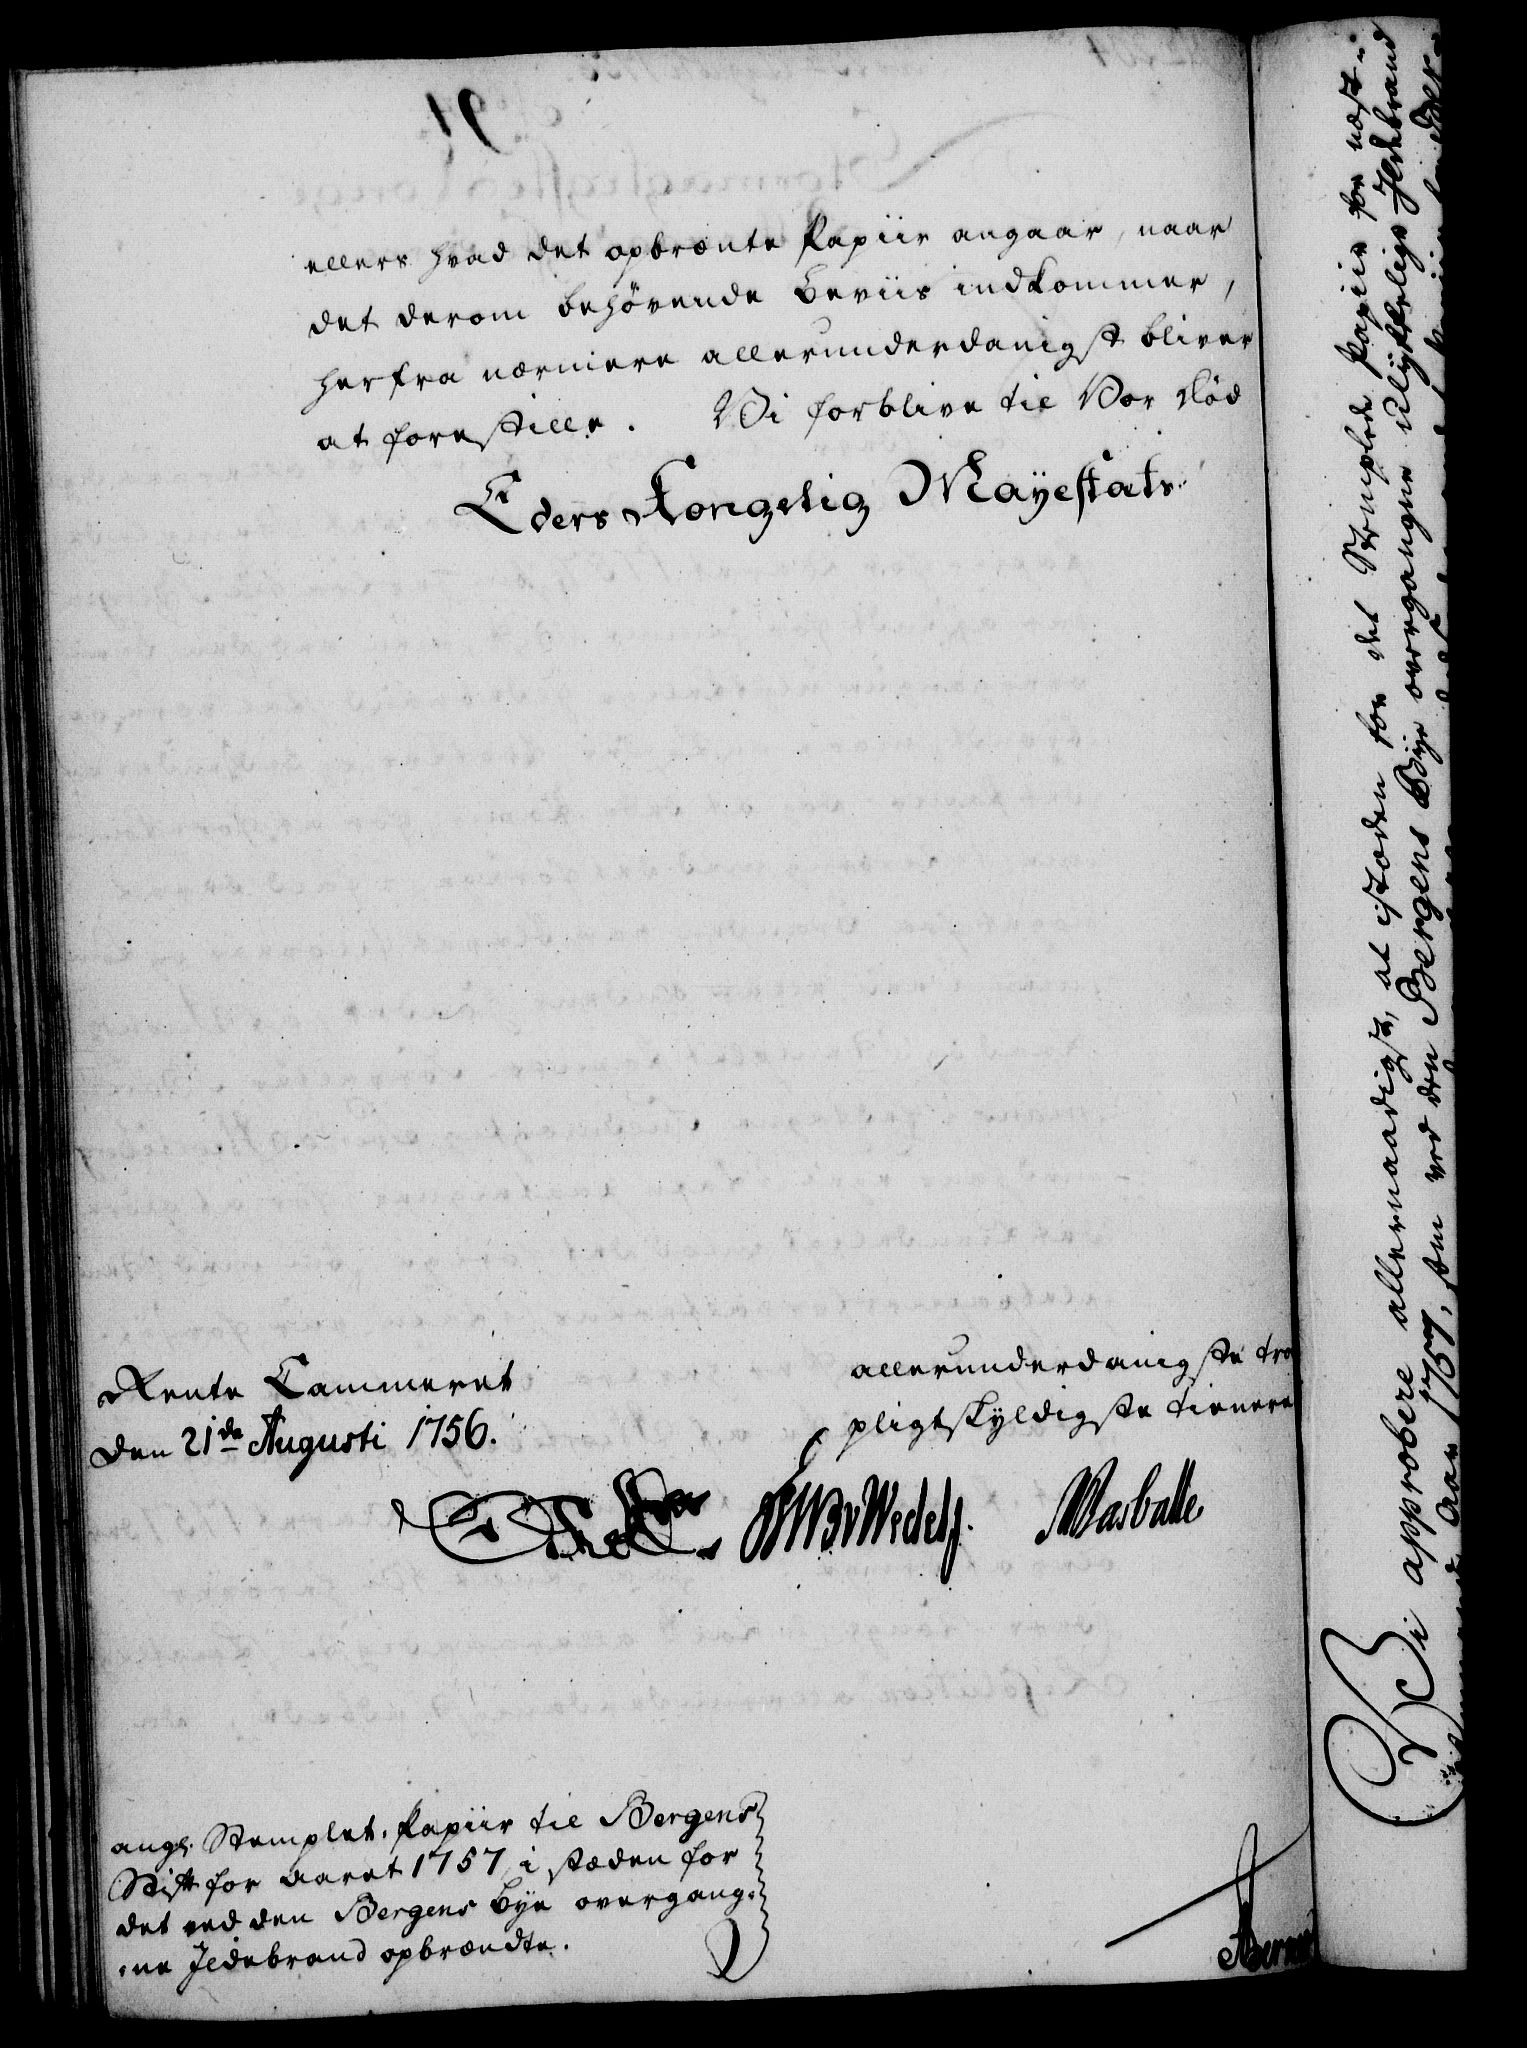 ellers hvad det opbrænte Papiir angaar, naar
det derom behövende Beviis indkommer,
herfra nærmere allerunderdanigst bliver
at forestille. Vi forblive til Vor död
Eders Kongelig Mayestæts
Rente Cammeret
den 21de Augusti 1756.
allerunderdanigste tro
pligtskyldigste tienere
Wedel
angl. Stemplet Papiir til Bergens
Stift for Aaret 1757 i stæden for
det ved den Bergens Bye overgang-
-ne Ildebrand opbrændte.
Vi approbere allernaadigst, at istæden for det Stemplede Papiir for næst-
Aar 1757, som ved den Bergens Bye overgangne ulykkelige Ildebrand